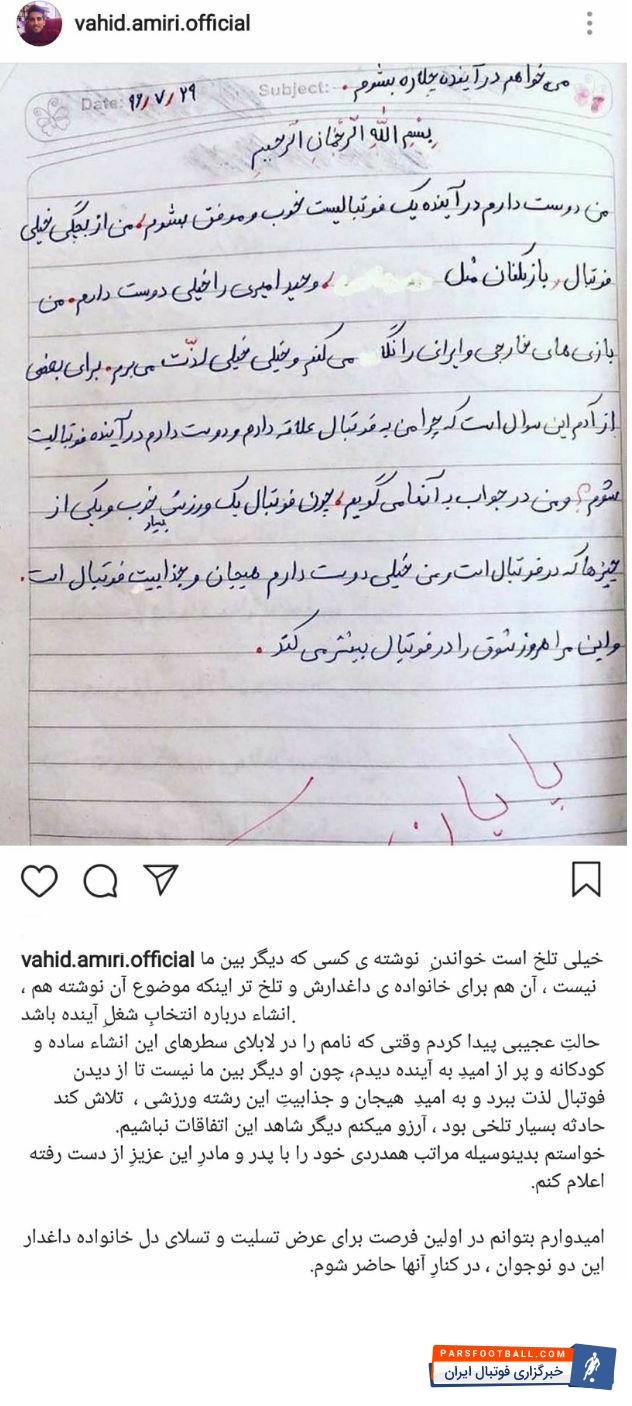 vahid.amiri.official
می‌خواهم در آینده چکاره بشوم.
Date: ۹۶/۷/۲۹ Subject:
بِسْمِ اللهِ الرَّحْمانِ الرَّحیمِ
من دوست دارم در آینده یک فوتبالیست خوب و موفق بشوم، من از بچگی خیلی
فوتبال و بازیکنان مثل ، وحید امیری را خیلی دوست دارم. من
بازی‌های خارجی و ایرانی را نگا می‌کنم و خیلی خیلی لذّت می‌برم. برای بعضی
از آدم این سوال است که چرا من به فوتبال علاقه دارم و دوست دارم در آینده فوتبالیت
بشوم؟ و من در جواب به آنها می‌گویم، چون فوتبال یک ورزش خوب و یکی از
بسیار
چیزها که در فوتبال است و من خیلی دوست دارم هیجان و جذابیت فوتبال است.
و این مرا هر روز شوق را در فوتبال بیشتر می‌کند.
پایان
vahid.amiri.official خیلی تلخ است خواندنِ نوشته ی کسی که دیگر بین ما
نیست ، آن هم برای خانواده ی داغدارش و تلخ تر اینکه موضوع آن نوشته هم ،
انشاء درباره انتخابِ شغلِ آینده باشد.
حالتِ عجیبی پیدا کردم وقتی که نامم را در لابلای سطرهای این انشاء ساده و
کودکانه و پر از امیدِ به آینده دیدم، چون او دیگر بین ما نیست تا از دیدن
فوتبال لذت ببرد و به امیدِ هیجان و جذابیتِ این رشته ورزشی ، تلاش کند
حادثه بسیار تلخی بود ، آرزو میکنم دیگر شاهد این اتفاقات نباشیم.
خواستم بدینوسیله مراتب همدردی خود را با پدر و مادرِ این عزیزِ از دست رفته
اعلام کنم.
امیدوارم بتوانم در اولین فرصت برای عرض تسلیت و تسلای دل خانواده داغدار
این دو نوجوان ، در کنارِ آنها حاضر شوم.
PARSFOOTBALL.COM
خبرگزاری فوتبال ایران